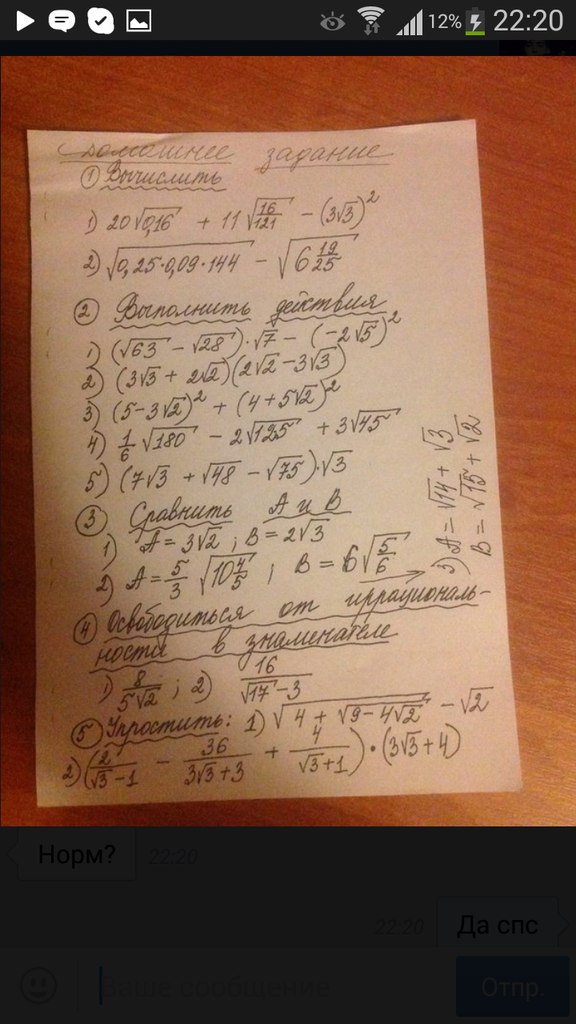 12% 22:20
Домашнее задание
① Вычислить
1) 20√0,16 + 11√(16/121) − (3√3)²
2) √(0,25·0,09·144) − √(6 19/25)
② Выполнить действия
1) (√63 − √28)·√7 − (−2√5)²
2) (3√3 + 2√2)(2√2 − 3√3)
3) (5−3√2)² + (4+5√2)²
4) 1/6 √180 − 2√125 + 3√45
5) (7√3 + √48 − √75)·√3
③ Сравнить A и B
1) A = 3√2 ; B = 2√3
2) A = 5/3 √(10 4/5) ; B = 6√(5/6)
3) A = √14 + √3
B = √15 + √2
④ Освободиться от иррациональ-
ности в знаменателе
1) 8/(5√2) ; 2) 16/(√17 − 3)
⑤ Упростить: 1) √(4 + √(9−4√2)) − √2
2) (2/(√3 −1) − 36/(3√3+3) + 4/(√3+1))·(3√3+4)
Норм? 22:20
22:20 Да спс
Ваше сообщение Отпр.